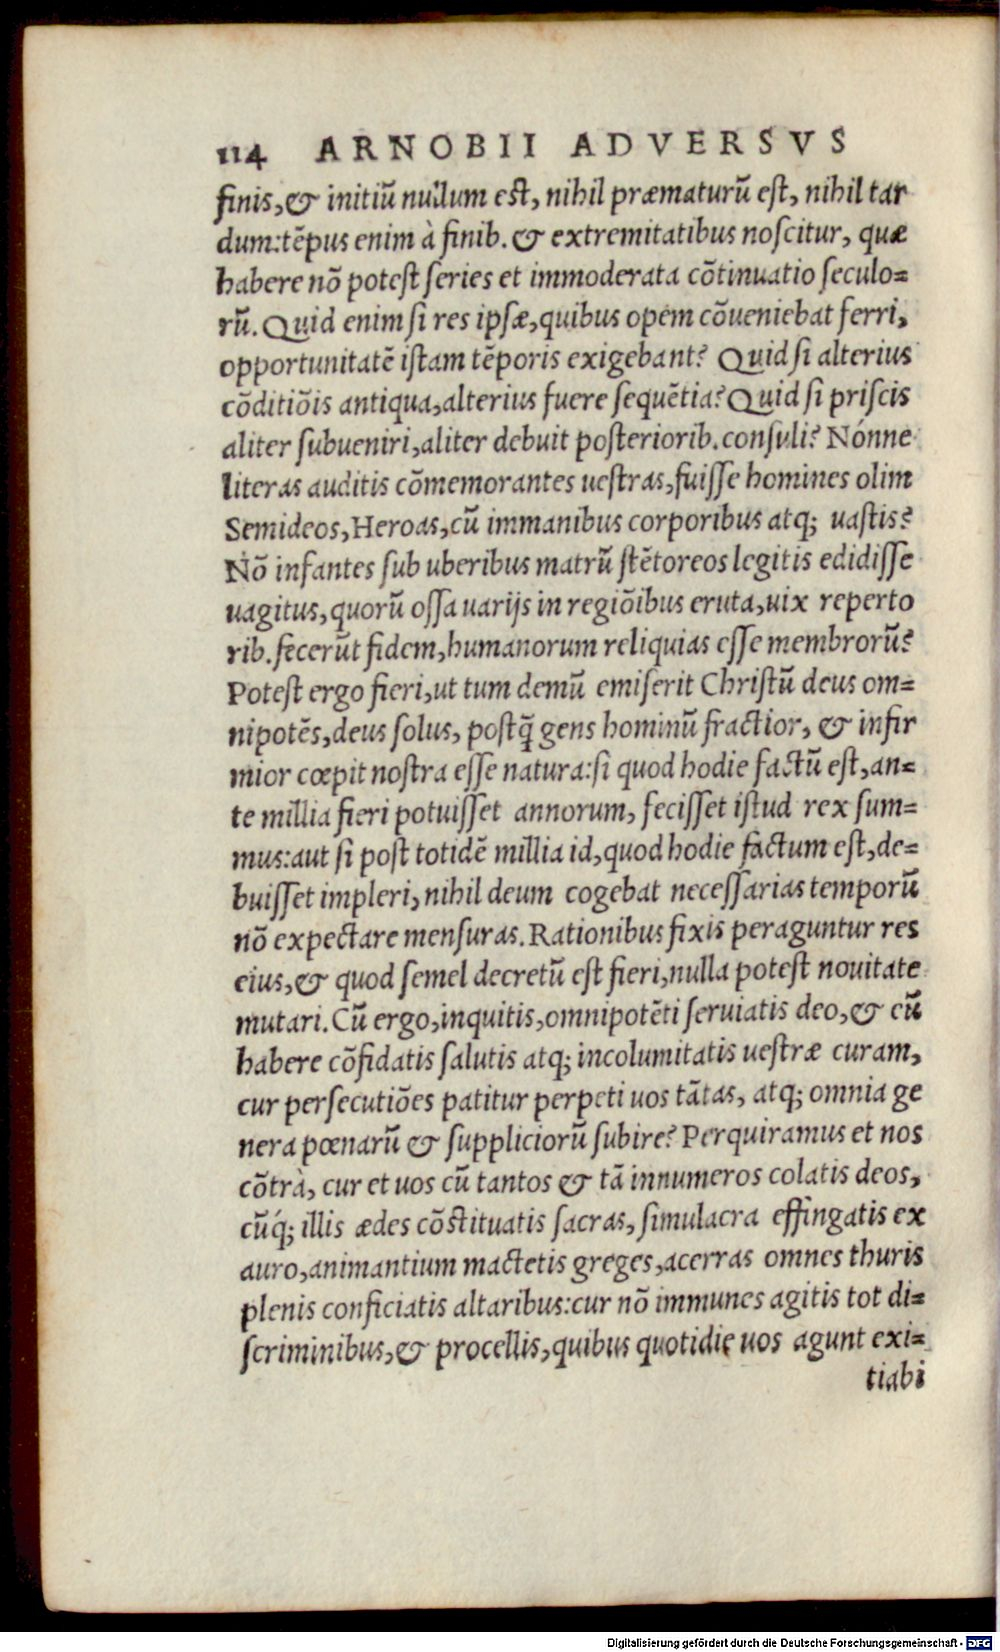 114 ARNOBII ADVERSVS
finis,& initiũ nullum est, nihil præmaturũ est, nihil tar
dum:tẽpus enim à finib. & extremitatibus noscitur, quæ
habere nõ potest series et immoderata cõtinuatio seculo=
rũ. Quid enim si res ipsæ,quibus opem cõueniebat ferri,
opportunitatẽ istam tẽporis exigebant? Quid si alterius
cõditiõis antiqua,alterius fuere sequẽtia? Quid si priscis
aliter subueniri,aliter debuit posteriorib.consuli? Nónne
literas auditis cõmemorantes uestras,fuisse homines olim
Semideos,Heroas,cũ immanibus corporibus atq; uastis?
Nõ infantes sub uberibus matrũ stẽtoreos legitis edidisse
uagitus,quorũ ossa uarijs in regiõibus eruta,uix reperto
rib.fecerũt fidem,humanorum reliquias esse membrorũ?
Potest ergo fieri,ut tum demũ emiserit Christũ deus om=
nipotẽs,deus solus, postq̃ gens hominũ fractior, & infir
mior cœpit nostra esse natura:si quod hodie factũ est,an=
te millia fieri potuisset annorum, fecisset istud rex sum=
mus:aut si post totidẽ millia id,quod hodie factum est,de=
buisset impleri,nihil deum cogebat necessarias temporũ
nõ expectare mensuras. Rationibus fixis peraguntur res
eius,& quod semel decretũ est fieri,nulla potest nouitate
mutari. Cũ ergo,inquitis,omnipotẽti seruiatis deo,& cũ
habere cõfidatis salutis atq; incolumitatis uestræ curam,
cur persecutiões patitur perpeti uos tãtas, atq; omnia ge
nera pœnarũ & suppliciorũ subire? Perquiramus et nos
cõtrà, cur et uos cũ tantos & tã innumeros colatis deos,
cũq́; illis ædes cõstituatis sacras, simulacra effingatis ex
auro,animantium mactetis greges,acerras omnes thuris
plenis conficiatis altaribus:cur nõ immunes agitis tot di=
scriminibus,& procellis,quibus quotidie uos agunt exi=
tiabi
Digitalisierung gefördert durch die Deutsche Forschungsgemeinschaft - DFG